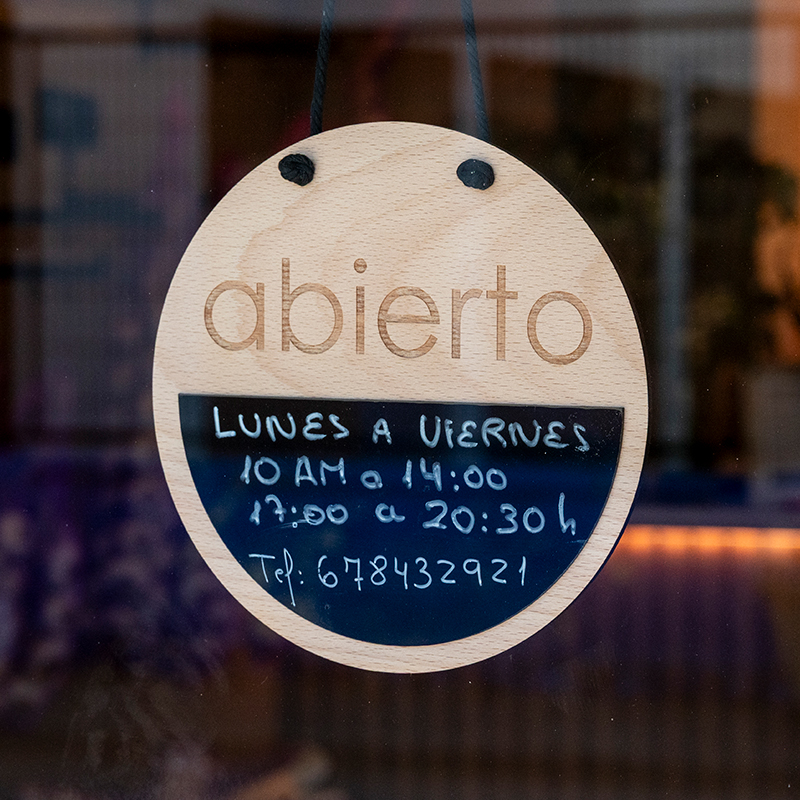 abierto
LUNES A VIERNES
10 AM a 14:00
17:00 a 20:30 h
Tef: 678432921